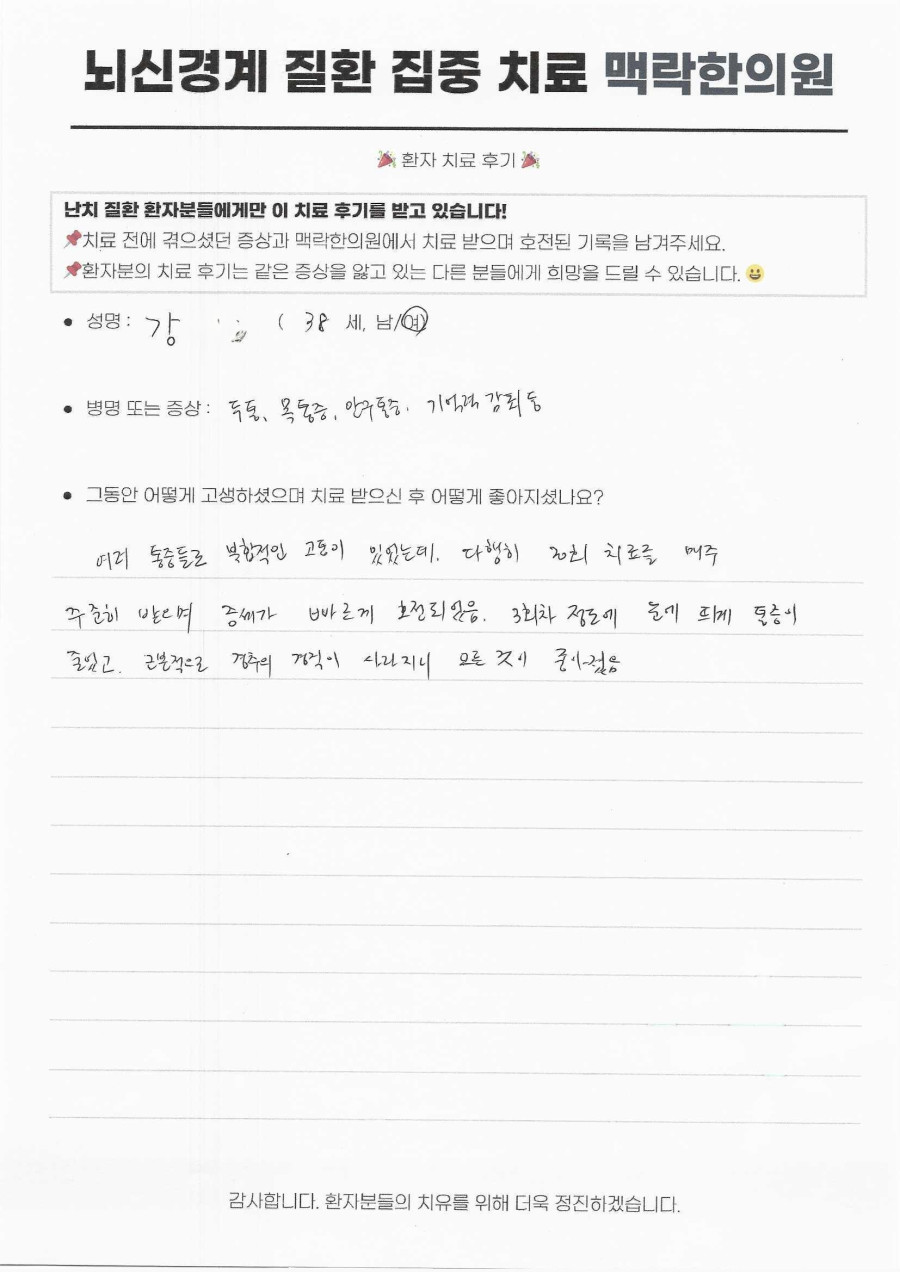 뇌신경계 질환 집중 치료 맥락한의원
🎉 환자 치료 후기 🎉
난치 질환 환자분들에게만 이 치료 후기를 받고 있습니다!
📌치료 전에 겪으셨던 증상과 맥락한의원에서 치료 받으며 호전된 기록을 남겨주세요.
📌환자분의 치료 후기는 같은 증상을 앓고 있는 다른 분들에게 희망을 드릴 수 있습니다. 😃
• 성명 : 강 ( 38 세, 남/여)
• 병명 또는 증상 : 두통, 목통증, 안구통증, 기억력감퇴 등
• 그동안 어떻게 고생하셨으며 치료 받으신 후 어떻게 좋아지셨나요?
여러 통증들로 복합적인 고통이 있었는데, 다행히 20회 치료를 매주
꾸준히 받으며 증세가 빠르게 호전되었음. 3회차 정도에 눈에 띄게 통증이
줄었고, 근본적으로 경추의 경직이 사라지니 모든 것이 좋아졌음
감사합니다. 환자분들의 치유를 위해 더욱 정진하겠습니다.